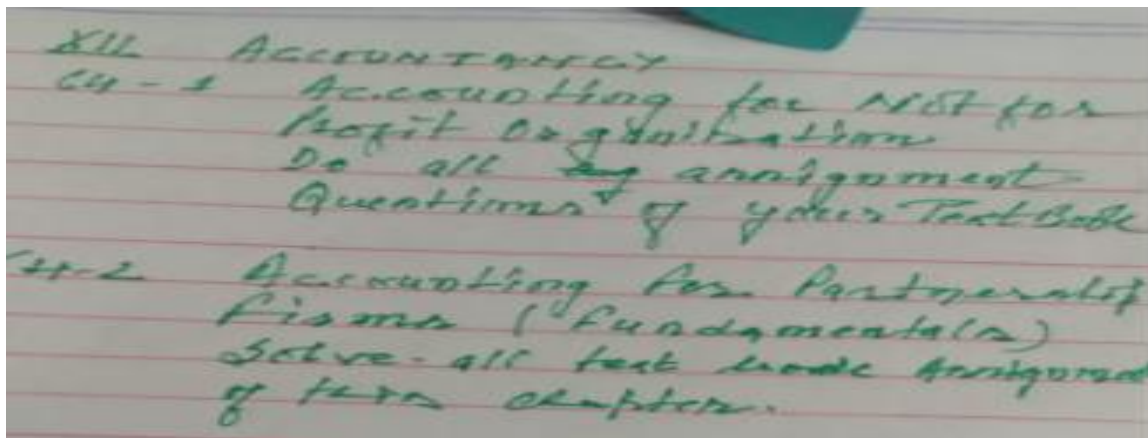 XII ACCOUNTANCY
CH-1 Accounting for Not for
Profit Organisation
Do all assignment
Questions of your Text Book
CH-2 Accounting for Partnership
Firms (Fundamentals)
Solve all text book Assignment
of this chapter.